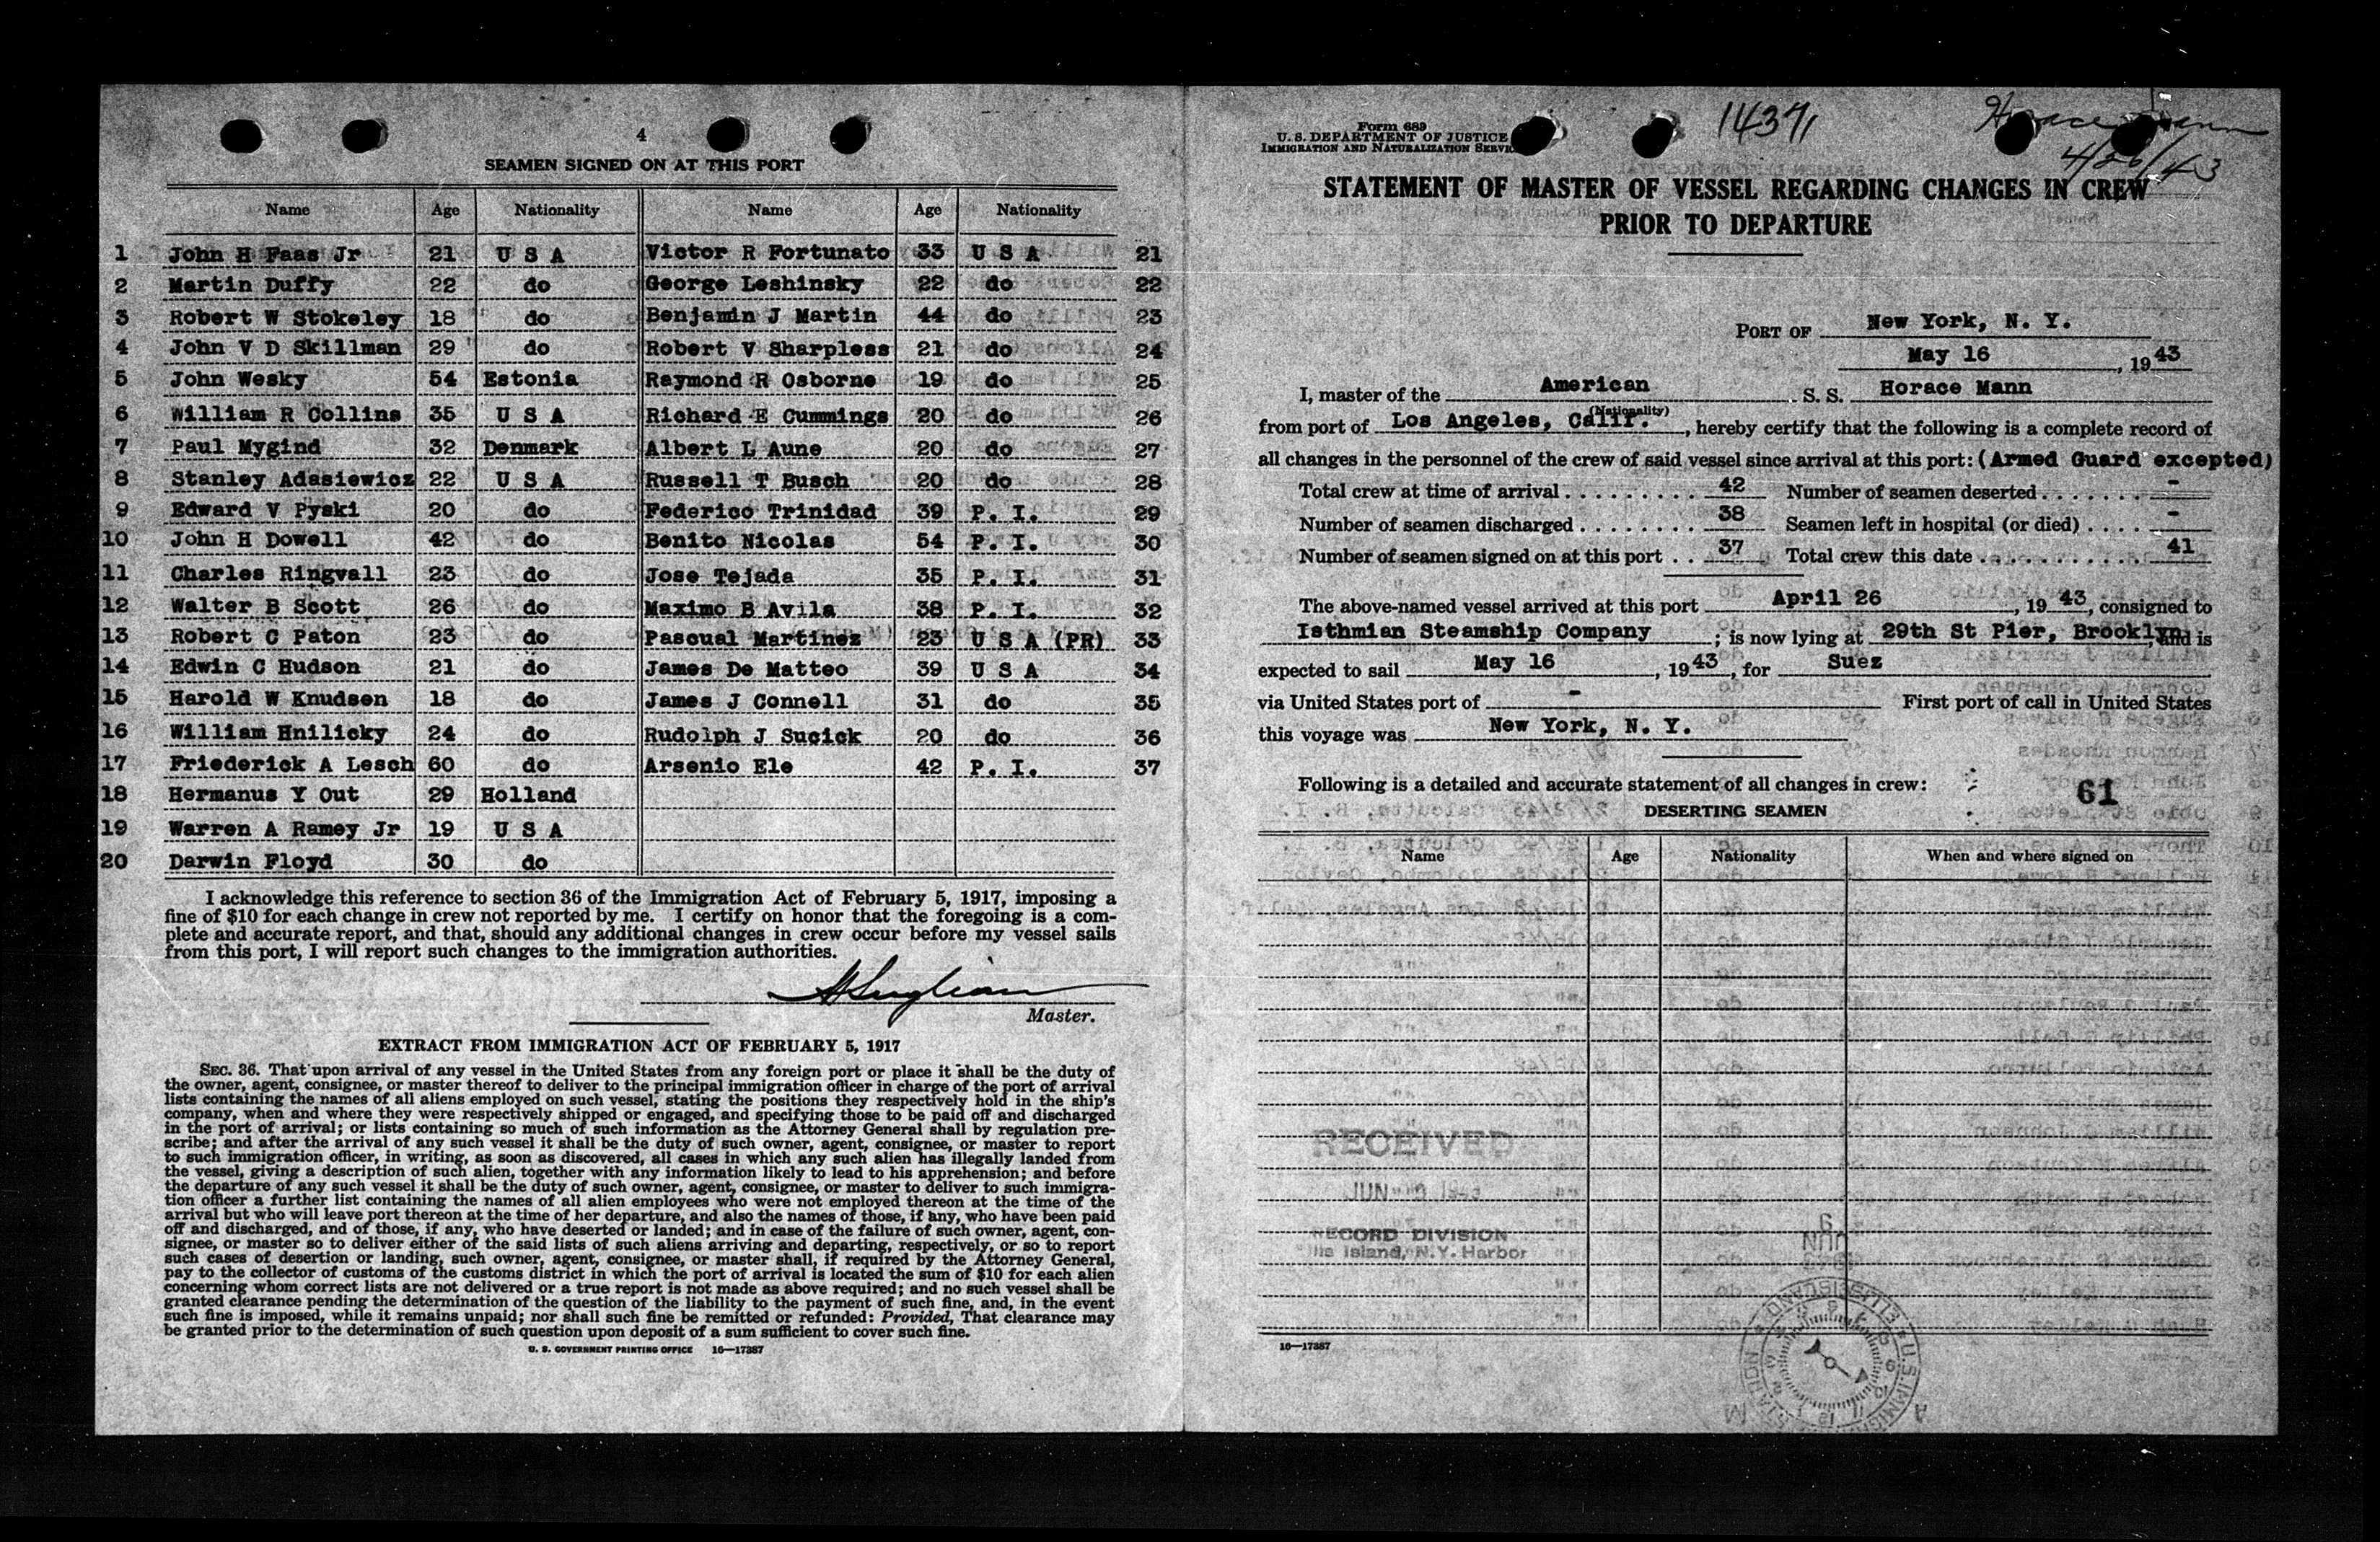 4
SEAMEN SIGNED ON AT THIS PORT
Name Age Nationality Name Age Nationality
1 John H Faas Jr 21 U S A Victor R Fortunato 33 U S A 21
2 Martin Duffy 22 do George Leshinsky 22 do 22
3 Robert W Stokeley 18 do Benjamin J Martin 44 do 23
4 John V D Skillman 29 do Robert V Sharpless 21 do 24
5 John Wesky 54 Estonia Raymond R Osborne 19 do 25
6 William R Collins 35 U S A Richard E Cummings 20 do 26
7 Paul Mygind 32 Denmark Albert L Aune 20 do 27
8 Stanley Adasiewicz 22 U S A Russell T Busch 20 do 28
9 Edward V Pyski 20 do Federico Trinidad 39 P. I. 29
10 John H Dowell 42 do Benito Nicolas 54 P. I. 30
11 Charles Ringvall 23 do Jose Tejada 35 P. I. 31
12 Walter B Scott 26 do Maximo B Avila 38 P. I. 32
13 Robert C Paton 23 do Pascual Martinez 23 U S A (PR) 33
14 Edwin C Hudson 21 do James De Matteo 39 U S A 34
15 Harold W Knudsen 18 do James J Connell 31 do 35
16 William Hnilicky 24 do Rudolph J Sucick 20 do 36
17 Friederick A Lesch 60 do Arsenio Ele 42 P. I. 37
18 Hermanus Y Out 29 Holland
19 Warren A Ramey Jr 19 U S A
20 Darwin Floyd 30 do
I acknowledge this reference to section 36 of the Immigration Act of February 5, 1917, imposing a
fine of $10 for each change in crew not reported by me. I certify on honor that the foregoing is a com-
plete and accurate report, and that, should any additional changes in crew occur before my vessel sails
from this port, I will report such changes to the immigration authorities.
Master.
EXTRACT FROM IMMIGRATION ACT OF FEBRUARY 5, 1917
SEC. 36. That upon arrival of any vessel in the United States from any foreign port or place it shall be the duty of
the owner, agent, consignee, or master thereof to deliver to the principal immigration officer in charge of the port of arrival
lists containing the names of all aliens employed on such vessel, stating the positions they respectively hold in the ship's
company, when and where they were respectively shipped or engaged, and specifying those to be paid off and discharged
in the port of arrival; or lists containing so much of such information as the Attorney General shall by regulation pre-
scribe; and after the arrival of any such vessel it shall be the duty of such owner, agent, consignee, or master to report
to such immigration officer, in writing, as soon as discovered, all cases in which any such alien has illegally landed from
the vessel, giving a description of such alien, together with any information likely to lead to his apprehension; and before
the departure of any such vessel it shall be the duty of such owner, agent, consignee, or master to deliver to such immigra-
tion officer a further list containing the names of all alien employees who were not employed thereon at the time of the
arrival but who will leave port thereon at the time of her departure, and also the names of those, if any, who have been paid
off and discharged, and of those, if any, who have deserted or landed; and in case of the failure of such owner, agent, con-
signee, or master so to deliver either of the said lists of such aliens arriving and departing, respectively, or so to report
such cases of desertion or landing, such owner, agent, consignee, or master shall, if required by the Attorney General,
pay to the collector of customs of the customs district in which the port of arrival is located the sum of $10 for each alien
concerning whom correct lists are not delivered or a true report is not made as above required; and no such vessel shall be
granted clearance pending the determination of the question of the liability to the payment of such fine, and, in the event
such fine is imposed, while it remains unpaid; nor shall such fine be remitted or refunded: Provided, That clearance may
be granted prior to the determination of such question upon deposit of a sum sufficient to cover such fine.
U. S. GOVERNMENT PRINTING OFFICE 16—17387
Form 689
U. S. DEPARTMENT OF JUSTICE
IMMIGRATION AND NATURALIZATION SERVI
14371
Horace Mann
4/26/43
STATEMENT OF MASTER OF VESSEL REGARDING CHANGES IN CREW
PRIOR TO DEPARTURE
PORT OF New York, N. Y.
May 16, 1943
I, master of the American S. S. Horace Mann
(Nationality)
from port of Los Angeles, Calif., hereby certify that the following is a complete record of
all changes in the personnel of the crew of said vessel since arrival at this port: (Armed Guard excepted)
Total crew at time of arrival . . . . . . . . . 42 Number of seamen deserted . . . . . . . -
Number of seamen discharged . . . . . . . . 38 Seamen left in hospital (or died) . . . . -
Number of seamen signed on at this port . . 37 Total crew this date . . . . . . . . . . . 41
The above-named vessel arrived at this port April 26, 1943, consigned to
Isthmian Steamship Company; is now lying at 29th St Pier, Brooklyn, and is
expected to sail May 16, 1943, for Suez
via United States port of - First port of call in United States
this voyage was New York, N. Y.
Following is a detailed and accurate statement of all changes in crew:
61
DESERTING SEAMEN
Name Age Nationality When and where signed on
RECEIVED
JUN
RECORD DIVISION
Island, N.Y. Harbor
16—17387